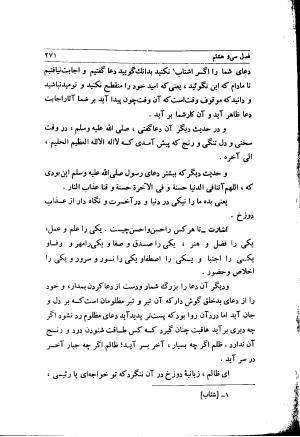 فصل سی و هشتم ۲۷۱
دعای شما را اگر اشتاب نکنید بدانك گویید دعا گفتیم و اجابت نیافتیم
تا مادام که این نگوئید ، یعنی که امید خود را منقطع نکنید و نومید نباشید
و دانید که موقوف وقت است که آن وقت چون پیدا آید بر شما آثار اجابت
دعا ظاهر آید و آن کار شما بر آید .
و در حدیث دیگر آن دعا گفتی ، صلی الله علیه وسلم ، در وقت
سختی و دل تنگی و رنج که پیش آمدی که لااله الاالله العظیم الحلیم ،
الی آخره .
و حدیث دیگر که بیشتر دعای رسول صلی الله علیه وسلم این بودی
که ، اللهم آتنا فی الدنیا حسنة و فی الآخرة حسنة و قنا عذاب النار .
یعنی بده ما را نیکی در دنیا و در آخرت و نگاه دار از عذاب
دوزخ .
اشارت ــ تا هر کس راحسن و احسن چیست . یکی را علم و عمل،
یکی را فضل و هنر ، یکی را صدق و صفا و یکی را مهر و وفا و
یکی را اجتبا و یکی را اصطفا و یکی را نور و سرور و یکی را
اخلاص و حضور .
دیگر آن دعا را بزرگ شمار و وست از دعا کردن بمدار، و خود
را از دعای بدخلق گوش دار که آن تیر و تبر مظلومان است که بر دل و
جان آید اما درد آن روا بود که پست تر پدید آید دعای مظلوم زد نگردد اگر
چه دیری بر آید عاقبت چنان گیرد که کس طاقت شنودن درد و رنج
آن ندارد . ظلم اگر چه بسیار ، آخر بسر آید؛ ظالم اگر چه جبار آخر
در سر آید .
ای ظالم ، زبانیهٔ دوزخ در آن ننگرد که تو خواجه‌ای یا رئیسی ،
۱ــ [شتاب]